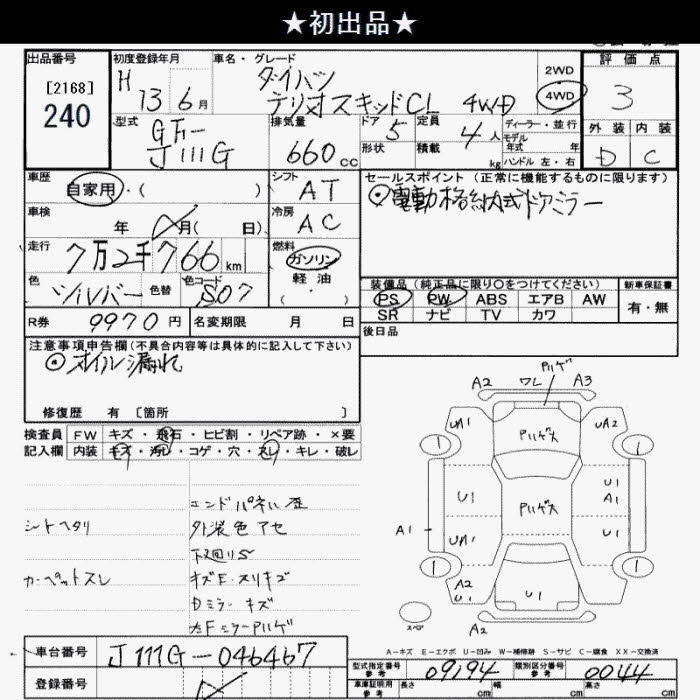 ★初出品★
出品番号
[2168]
240
初度登録年月
H 13 6月
車名・グレード
ダイハツ
テリオスキッドCL 4WD
2WD
4WD
評価点
3
外装 内装
D C
型式
GF-
J111G
排気量
660cc
ドア
5
形状
定員
4人
積載
kg
ディーラー・並行
モデル
年式 年
ハンドル 左・右
車歴
自家用・( )
シフト
AT
セールスポイント (正常に機能するものに限ります)
◎電動格納式ドアミラー
車検
年 月( 日)
冷房
AC
走行
7万2千766km
燃料
ガソリン
軽油
( ・ )
色
シルバー
色替
色コード
S07
装備品(純正品に限り○をつけてください)
PS PW ABS エアB AW
SR ナビ TV カワ
新車保証書
有・無
R券 9970円
名変期限 月 日
後日品
注意事項申告欄(不具合内容等は具体的に記入して下さい)
◎オイル漏れ
修復歴 有 [箇所 ]
検査員
記入欄
FW キズ・飛石・ヒビ割・リペア跡・×要
内装 キズ・汚レ・コゲ・穴・スレ・キレ・破レ
シートヘタリ
カーペットスレ
エンドパネル歪
外装色アセ
下廻りS
キズE・スリキズ
Dミラーキズ
左FミラーPハゲ
Pハゲ
A2 ワレ A3
UA1 Pハゲ大 UA2
1 1
U1 Pハゲ大 U1
A1
A1 UA1 U1
1 1
A2
U1 U1
スペア A2
A-キズ E-エクボ U-凹み W-補修跡 S-サビ C-腐食 XX-交換済
車台番号 J111G-046467
登録番号
型式指定番号
参考
09194
類別区分番号
参考
0044
車庫証明用
参考
長さ cm 幅 cm 高さ cm